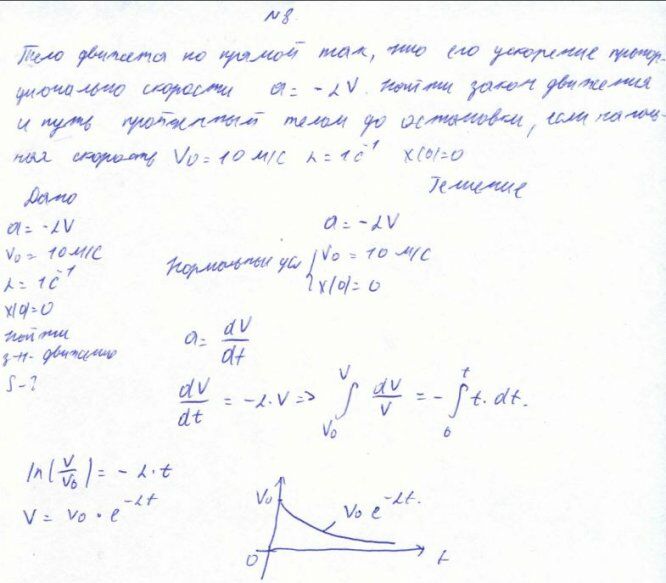 №8.
Тело движется по прямой так, что его ускорение пропор-
ционально скорости a = -αV. Найти закон движения
и путь пройденный телом до остановки, если началь-
ная скорость V₀ = 10 м/с α = 1 с⁻¹ x(0) = 0
Дано
Решение
a = -αV
V₀ = 10 м/с
α = 1 с⁻¹
x(0) = 0
Найти
з-н движения
S - ?
a = -αV
Нормальные усл { V₀ = 10 м/с
x(0) = 0
a = dV/dt
dV/dt = -α·V => ∫_{V₀}^{V} dV/V = -∫_{0}^{t} t·dt.
ln(V/V₀) = -α·t
V = V₀·e^{-αt}
V₀
V₀ e^{-αt}.
0
t